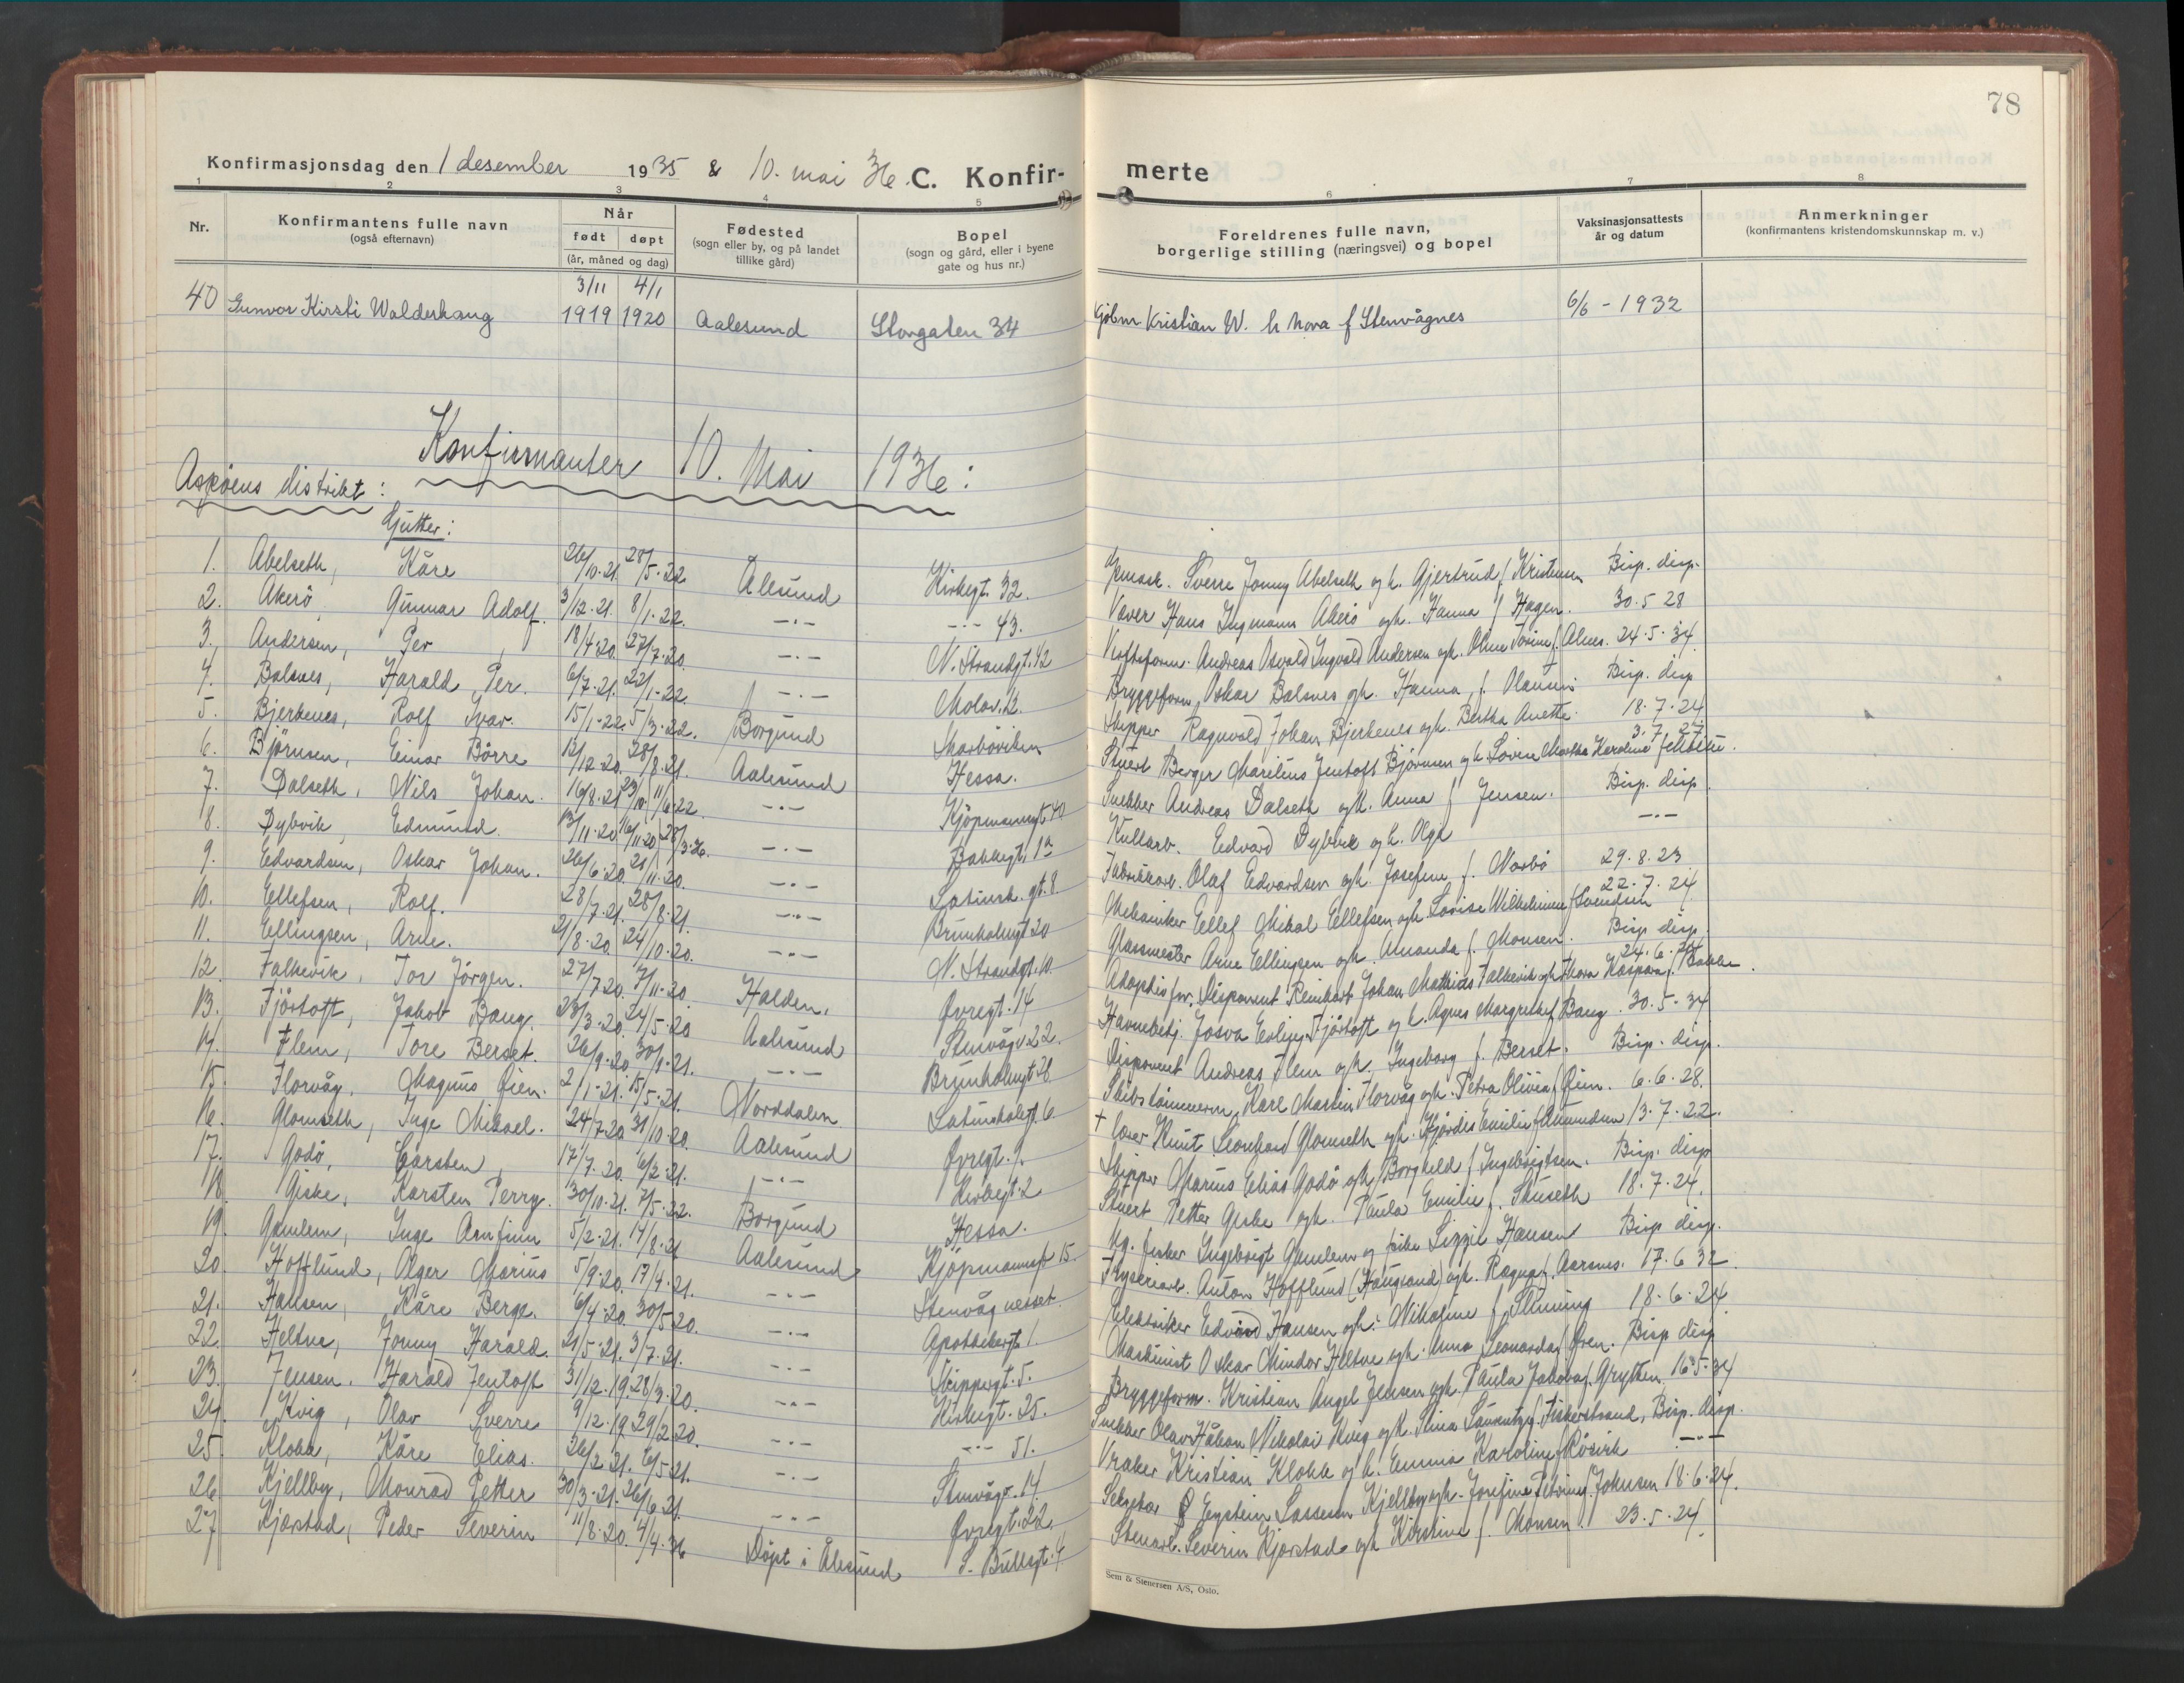 78
Konfirmasjonsdag den 1 desember 1935 & 10. mai 36. C. Konfir- merte
1 2 3 4 5 6 7 8
Nr. Konfirmantens fulle navn (også efternavn) Når født døpt (år, måned og dag) Fødested (sogn eller by, og på landet tillike gård) Bopel (sogn og gård, eller i byene gate og hus nr.) Foreldrenes fulle navn, borgerlige stilling (næringsvei) og bopel Vaksinasjonsattests år og datum Anmerkninger (konfirmantens kristendomskunnskap m. v.)
40 Gunvor Kirsti Walderhaug 3/11 1919 4/1 1920 Aalesund Storgaten 34 Kjøbm Kristian W. h Nora f Stenvågnes 6/6 - 1932
Konfirmanter 10. Mai 1936:
Aspøens distrikt:
Gutter:
1. Abelseth, Kåre 26/10.21. 28/5.22 Ålesund Kirkegt. 32. Sverre Jonny Abelseth og h. Gjertrud f. Kristensen Bisp. disp.
2. Akerö, Gunnar Adolf. 3/12.21. 8/1.22. -"- -"- 43. Væver Hans Ingmann Akerö og h. Hanna f. Hagen. 30.5 28
3. Andersen, Per 18/4.20. 27/7.20. -"- N. Strandgt. 42 Andreas Osvald Ingvald Andersen og h. Oline Torine f. Alnes. 24.5.34.
4. Balsnes, Harald Per. 6/7.21. 22/1.22. -"- Molov. 12. Bryggeform Oskar Balsnes og h. Hanna f. Olausen Bisp. disp
5. Bjerkenes, Rolf Ivar. 15/1.22. 5/3.22. Borgund Skarböviken Skipper Ragnvald Johan Bjerkenes og h. Bertha Anette. 18.7.24
6. Björnsen, Einar Börre 12/12.20. 28/8.21. Aalesund Hessa. Stuert Berger Marilius Jentoft Björnsen og h. Lovise Martha Karoline 3.7.27.
7. Dalseth, Nils Johan. 16/8.21 23/10. 11/6.22 -"- Kjöpmannsgt 40 Snekker Andreas Dalseth og h. Anna f. Jensen. Bisp. disp.
8. Dybvik, Edmund. 13/11.20 16/11.20 28/3.26. -"- Bakkegt. 1a Kullarb. Edvard Dybvik og h. Olga -"-
9. Edvardsen, Oskar Johan. 26/6.20. 21/11.20. -"- Latinsk. gt. 8. Fabrikkarb. Olaf Edvardsen og h. Josefine f. Norbö 29.8.23
10. Ellefsen, Rolf. 28/7.21. 28/8.21. -"- Brunholmgt 20 Mekaniker Ellef Mikal Ellefsen og h. Lovise Wilhelmine f Svendsen 22.7.24
11. Ellingsen, Arne. 21/8.20 24/10.20. -"- N. Strandgt. 10. Glassmester Arne Ellingsen og h. Amanda f. Monsen. Bisp disp.
12. Falkevik, Tor Jörgen. 27/7.20. 7/11.20 Halden. Øvregt. 14 Adoptivfor. Disponent Reinhart Johan Mathias Falkevik og h. Thora Kaspara f. Bakke 24.6.
13. Fjörtoft, Jakob Bang. 23/3.20. 24/5.20 Aalesund Stenvågv 22. Havnebetj. Josva Fjörtoft og h. Agnes Margrethe f Bang. 30.5.34
14. Flem, Tore Berset. 26/9.20. 30/1.21. -"- Brunholmgt 28 Disponent Andreas Flem og h. Ingeborg f. Berset. Bisp. disp.
15. Florvåg, Magnus Øien. 2/1.21. 15/5.21. Norddalen. Latinskolegt 6. Skibstömmerm. Karl Martin Florvåg og h. Petra Olivia f Øien. 6.6.28.
16. Glomseth, Inge Mikael. 24/7.20 31/10.20. Aalesund Øvregt. 9. † lærer Knut Leonhard Glomseth og h. Hjördis Emilie f Amundsen 13.7.22.
17. Godö, Carsten, 17/7.20. 6/2.21. -"- Kirkegt. 2 Skipper Marius Elias Godö og h. Borghild f Ingebrigtsen. Bisp. disp
18. Giske, Karsten Perry. 30/10.21. 7/5.22. Borgund Hessa. Stuert Petter Giske og h. Paula Emilie f. Skuseth 18.7.24.
19. Gamlem, Inge Arnfinn 5/2.21. 14/8.21 Aalesund Kjöpmannsgt 15. Ug. fisker Ingebrigt Gamlem og pike Lizzie Hansen Bisp disp.
20. Hofflund, Alger Marius 5/9.20. 17/4.21. -"- Stenvågnesset. Fryseriarb. Anton Hofflund (Haugland) og h. Ragna f. Aarsnes. 17.6 32
21. Hansen, Kåre Berge. 6/4.20. 30/5.20. -"- Apotekergt 1. Elektriker Edvard Hansen og h. Nikoline f. Slinning 18.6.24.
22. Heltne, Jonny Harald. 21/5.21. 3/7.21. -"- Skippergt. 5. Maskinist Oskar Mindor Heltne og h. Anna Leonarda f Øren. Bisp disp
23. Jensen. Harald Jentoft 31/12.19. 28/3.20. -"- Kirkegt. 25. Bryggeform. Kristian Angel Jensen og h. Paula Jakoba f. Grytten. 16.5.34
24. Kvig, Olav Sverre 9/12.19. 29/2.20. -"- -"- 51. Snekker Olav Håkon Nikolai Kvig og h. Stina Laurentze f. Fiskerstrand, Bisp. disp.
25. Klokk, Kåre Elias. 26/2.21. 6/5.21. -"- Stenvågv. 14. Vraker Kristian Klokk og h. Emma Karoline f Rösvik -"-
26. Kjellby, Monrad Petter 30/3.21. 26/6.21. -"- Øvregt. 22. Eystein Lassesen Kjellby og h. Josefine Petrine f. Johnsen 18.6.24.
27. Kjørstad, Peder Severin 11/8.20. 4/4.36 Döpt i Ålesund S. Bullsgt. 4 Stenarb. Severin Kjørstad og h Kirstine f. Monsen. 23.5.24.
Sem & Stenersen A/S, Oslo.